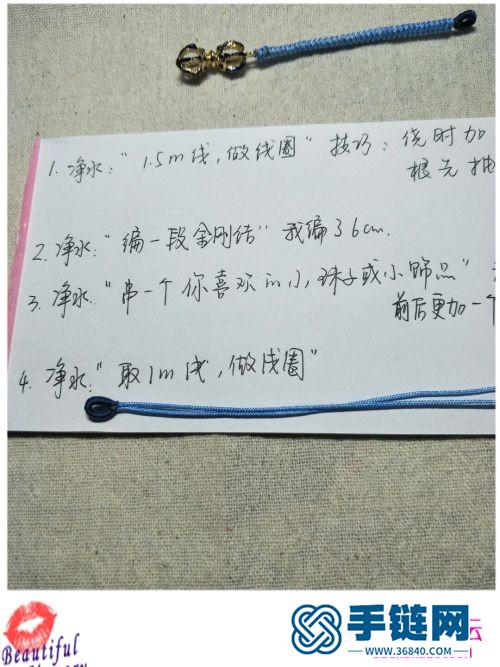 1. 净水:“1.5m线,做线圈” 技巧:绕时加
根元抽
2. 净水:“编一段金刚结” 我编了6cm.
3. 净水“串一个你喜欢的小珠子或小饰品”
前后更加一个
4. 净水:“取1m线,做线圈”
Beautiful
手链网
www.36840.com